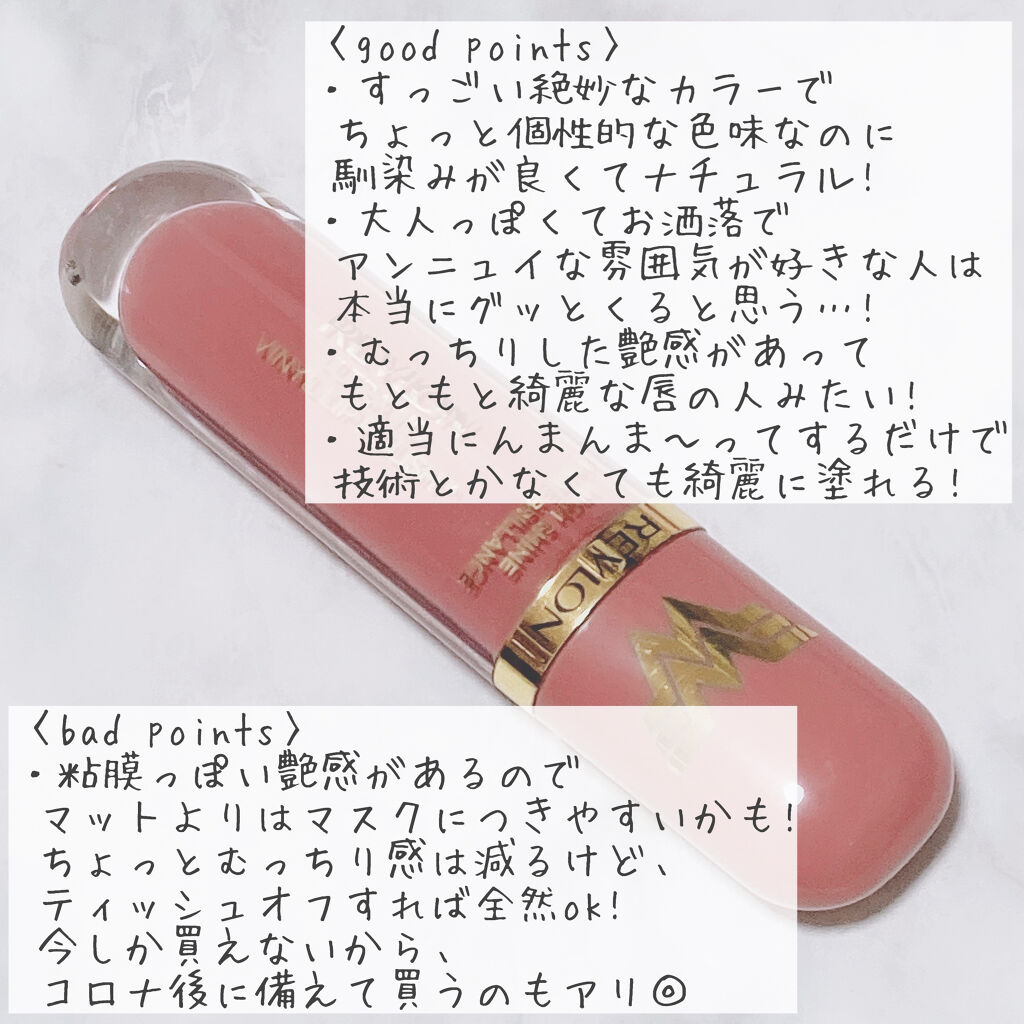 〈good points〉
・すっごい絶妙なカラーで
ちょっと個性的な色味なのに
馴染みが良くてナチュラル!
・大人っぽくてお洒落で
アンニュイな雰囲気が好きな人は
本当にグッとくると思う…!
・むっちりした艶感があって
もともと綺麗な唇の人みたい!
・適当にんまんま〜ってするだけで
技術とかなくても綺麗に塗れる!
HIGH SHINE
REVLON
〈bad points〉
・粘膜っぽい艶感があるので
マットよりはマスクにつきやすいかも!
ちょっとむっちり感は減るけど、
ティッシュオフすれば全然ok!
今しか買えないから、
コロナ後に備えて買うのもアリ◎